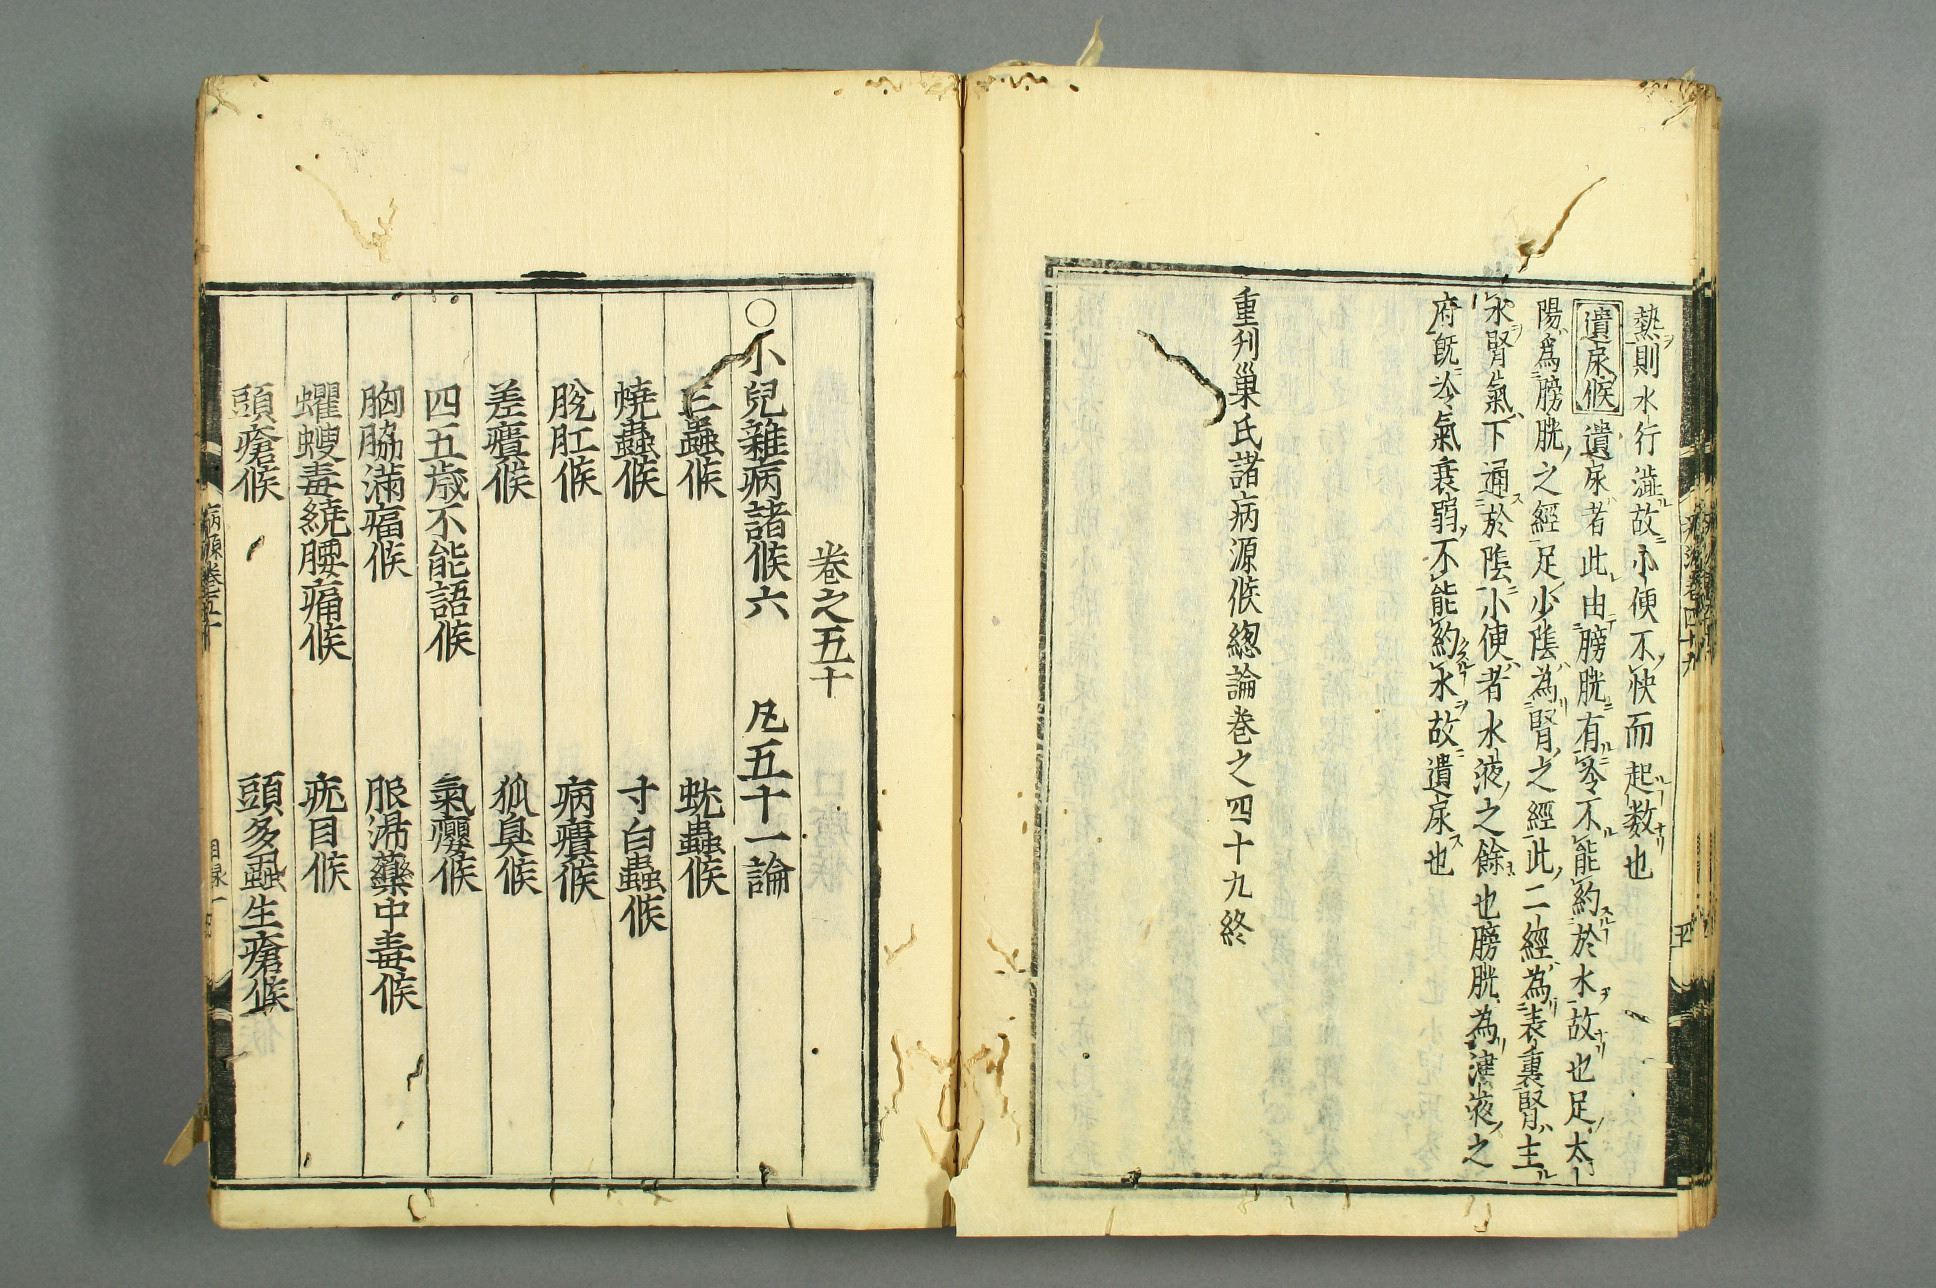 熱則水行澁故小便不快而起数也
遺尿候 遺尿者此由膀胱有冷不能約於水故也足太
陽為膀胱之經足少陰為腎之經此二經為表裏腎主
水腎氣下通於陰小便者水液之餘也膀胱為津液之
府既冷氣衰弱不能約水故遺尿也
重刋巢氏諸病源候總論巻之四十九終
巻之五十
○小兒雜病諸候六 凡五十一論
三蟲候 蚘蟲候
蟯蟲候 寸白蟲候
脫肛候 病㿉候
差㿉候 狐臭候
四五歳不能語候 氣癭候
胸脇滿痛候 服湯藥中毒候
蠼螋毒繞腰痛候 疣目候
頭瘡候 頭多虱生瘡候
病源巻五十
目录一